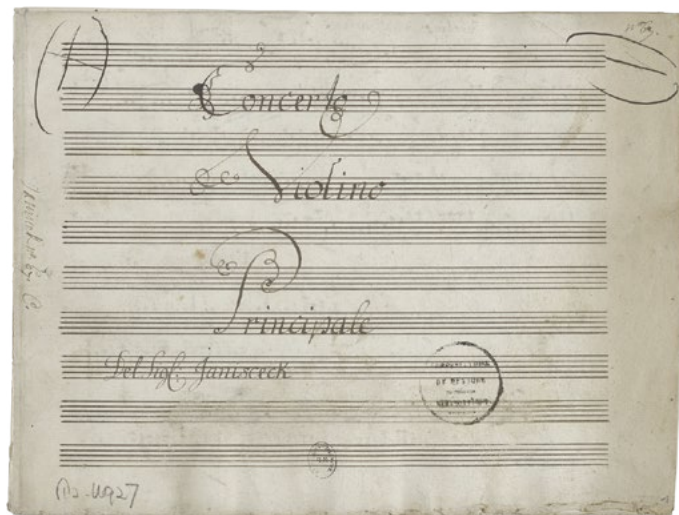 Concerto
Violino
Principale
Del Sig.r Janisceck
DE MUSIQUE